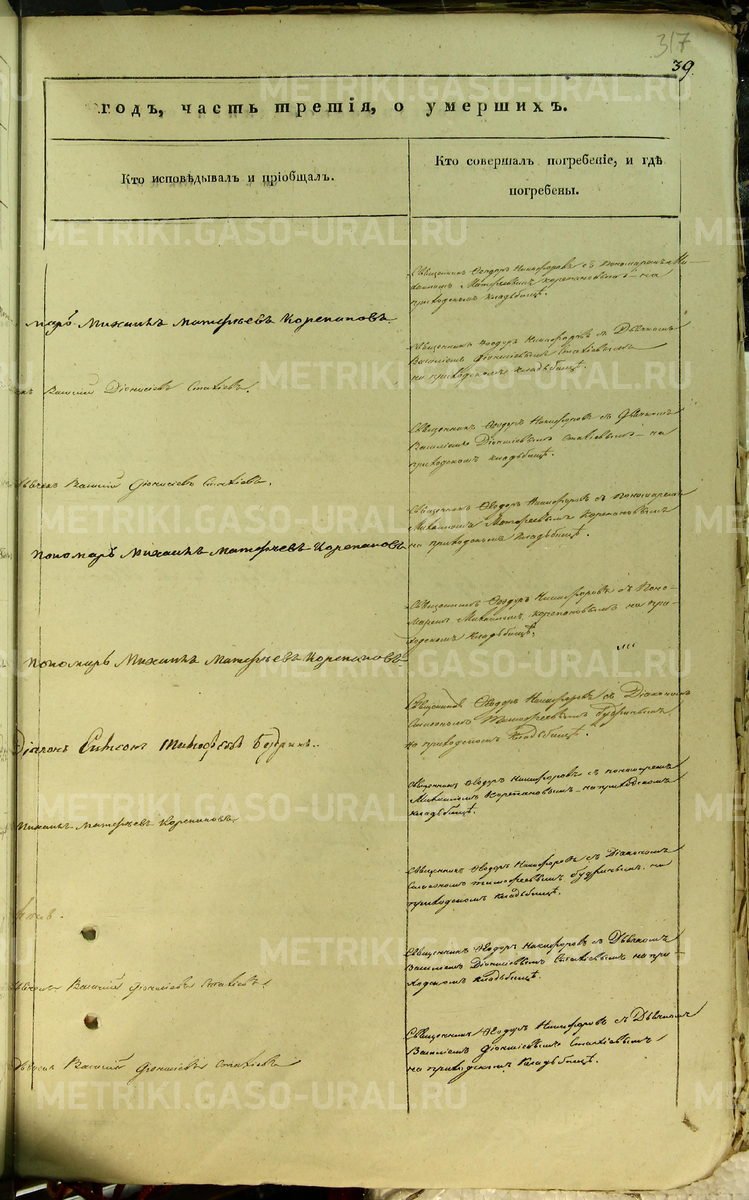 317
39.
годъ, часть третія, о умершихъ.
Кто исповѣдывалъ и пріобщалъ.
Кто совершалъ погребеніе, и гдѣ
погребены.
Священникъ Ѳеодоръ Никифоровъ съ Пономаремъ Ми-
хаиломъ Матфеевымъ Корепановымъ на
приходскомъ кладбищѣ.
Михаилъ Матфѣевъ Корепановъ.
Священникъ Ѳеодоръ Никифоровъ съ Дьячкомъ
Василіемъ Діонисіевымъ Стахіевымъ
на приходскомъ кладьбищѣ.
Василій Діонисіевъ Стахіевъ.
Священникъ Ѳеодоръ Никифоровъ съ Дьячкомъ
Василіемъ Діонисіевымъ Стахіевымъ на
приходскомъ кладьбищѣ.
Василій Діонисіевъ Стахіевъ.
Священникъ Ѳеодоръ Никифоровъ съ Пономаремъ
Михаиломъ Матфеевымъ Корепановымъ
на приходскомъ кладьбищѣ.
Пономарь Михаилъ Матфѣевъ Корепановъ
Священникъ Ѳеодоръ Никифоровъ съ Поно-
маремъ Михаиломъ Корепановымъ на при-
ходскомъ кладьбищѣ.
Пономарь Михаилъ Матфѣевъ Корепановъ
Священникъ Ѳеодоръ Никифоровъ съ Діакономъ
Симеономъ Тимофеевымъ Будринымъ
на приходскомъ кладьбищѣ.
Діаконъ Симеонъ Тимофеевъ Будринъ.
Священникъ Ѳеодоръ Никифоровъ съ пономаремъ
Михаиломъ Корепановымъ на приходскомъ
кладьбищѣ.
Михаилъ Матфѣевъ Корепановъ
Священникъ Ѳеодоръ Никифоровъ съ Діакономъ
Симеономъ Тимофеевымъ Будринымъ на
приходскомъ кладьбищѣ.
Священникъ Ѳеодоръ Никифоровъ съ Дьячкомъ
Василіемъ Діонисіевымъ Стахіевымъ на при-
ходскомъ кладьбищѣ.
Василій Діонисіевъ Стахіевъ
Священникъ Ѳеодоръ Никифоровъ съ Дьячкомъ
Василіемъ Діонисіевымъ Стахіевымъ
на приходскомъ кладьбищѣ.
Дьячекъ Василій Діонисіевъ Стахіевъ
METRIKI.GASO-URAL.RU